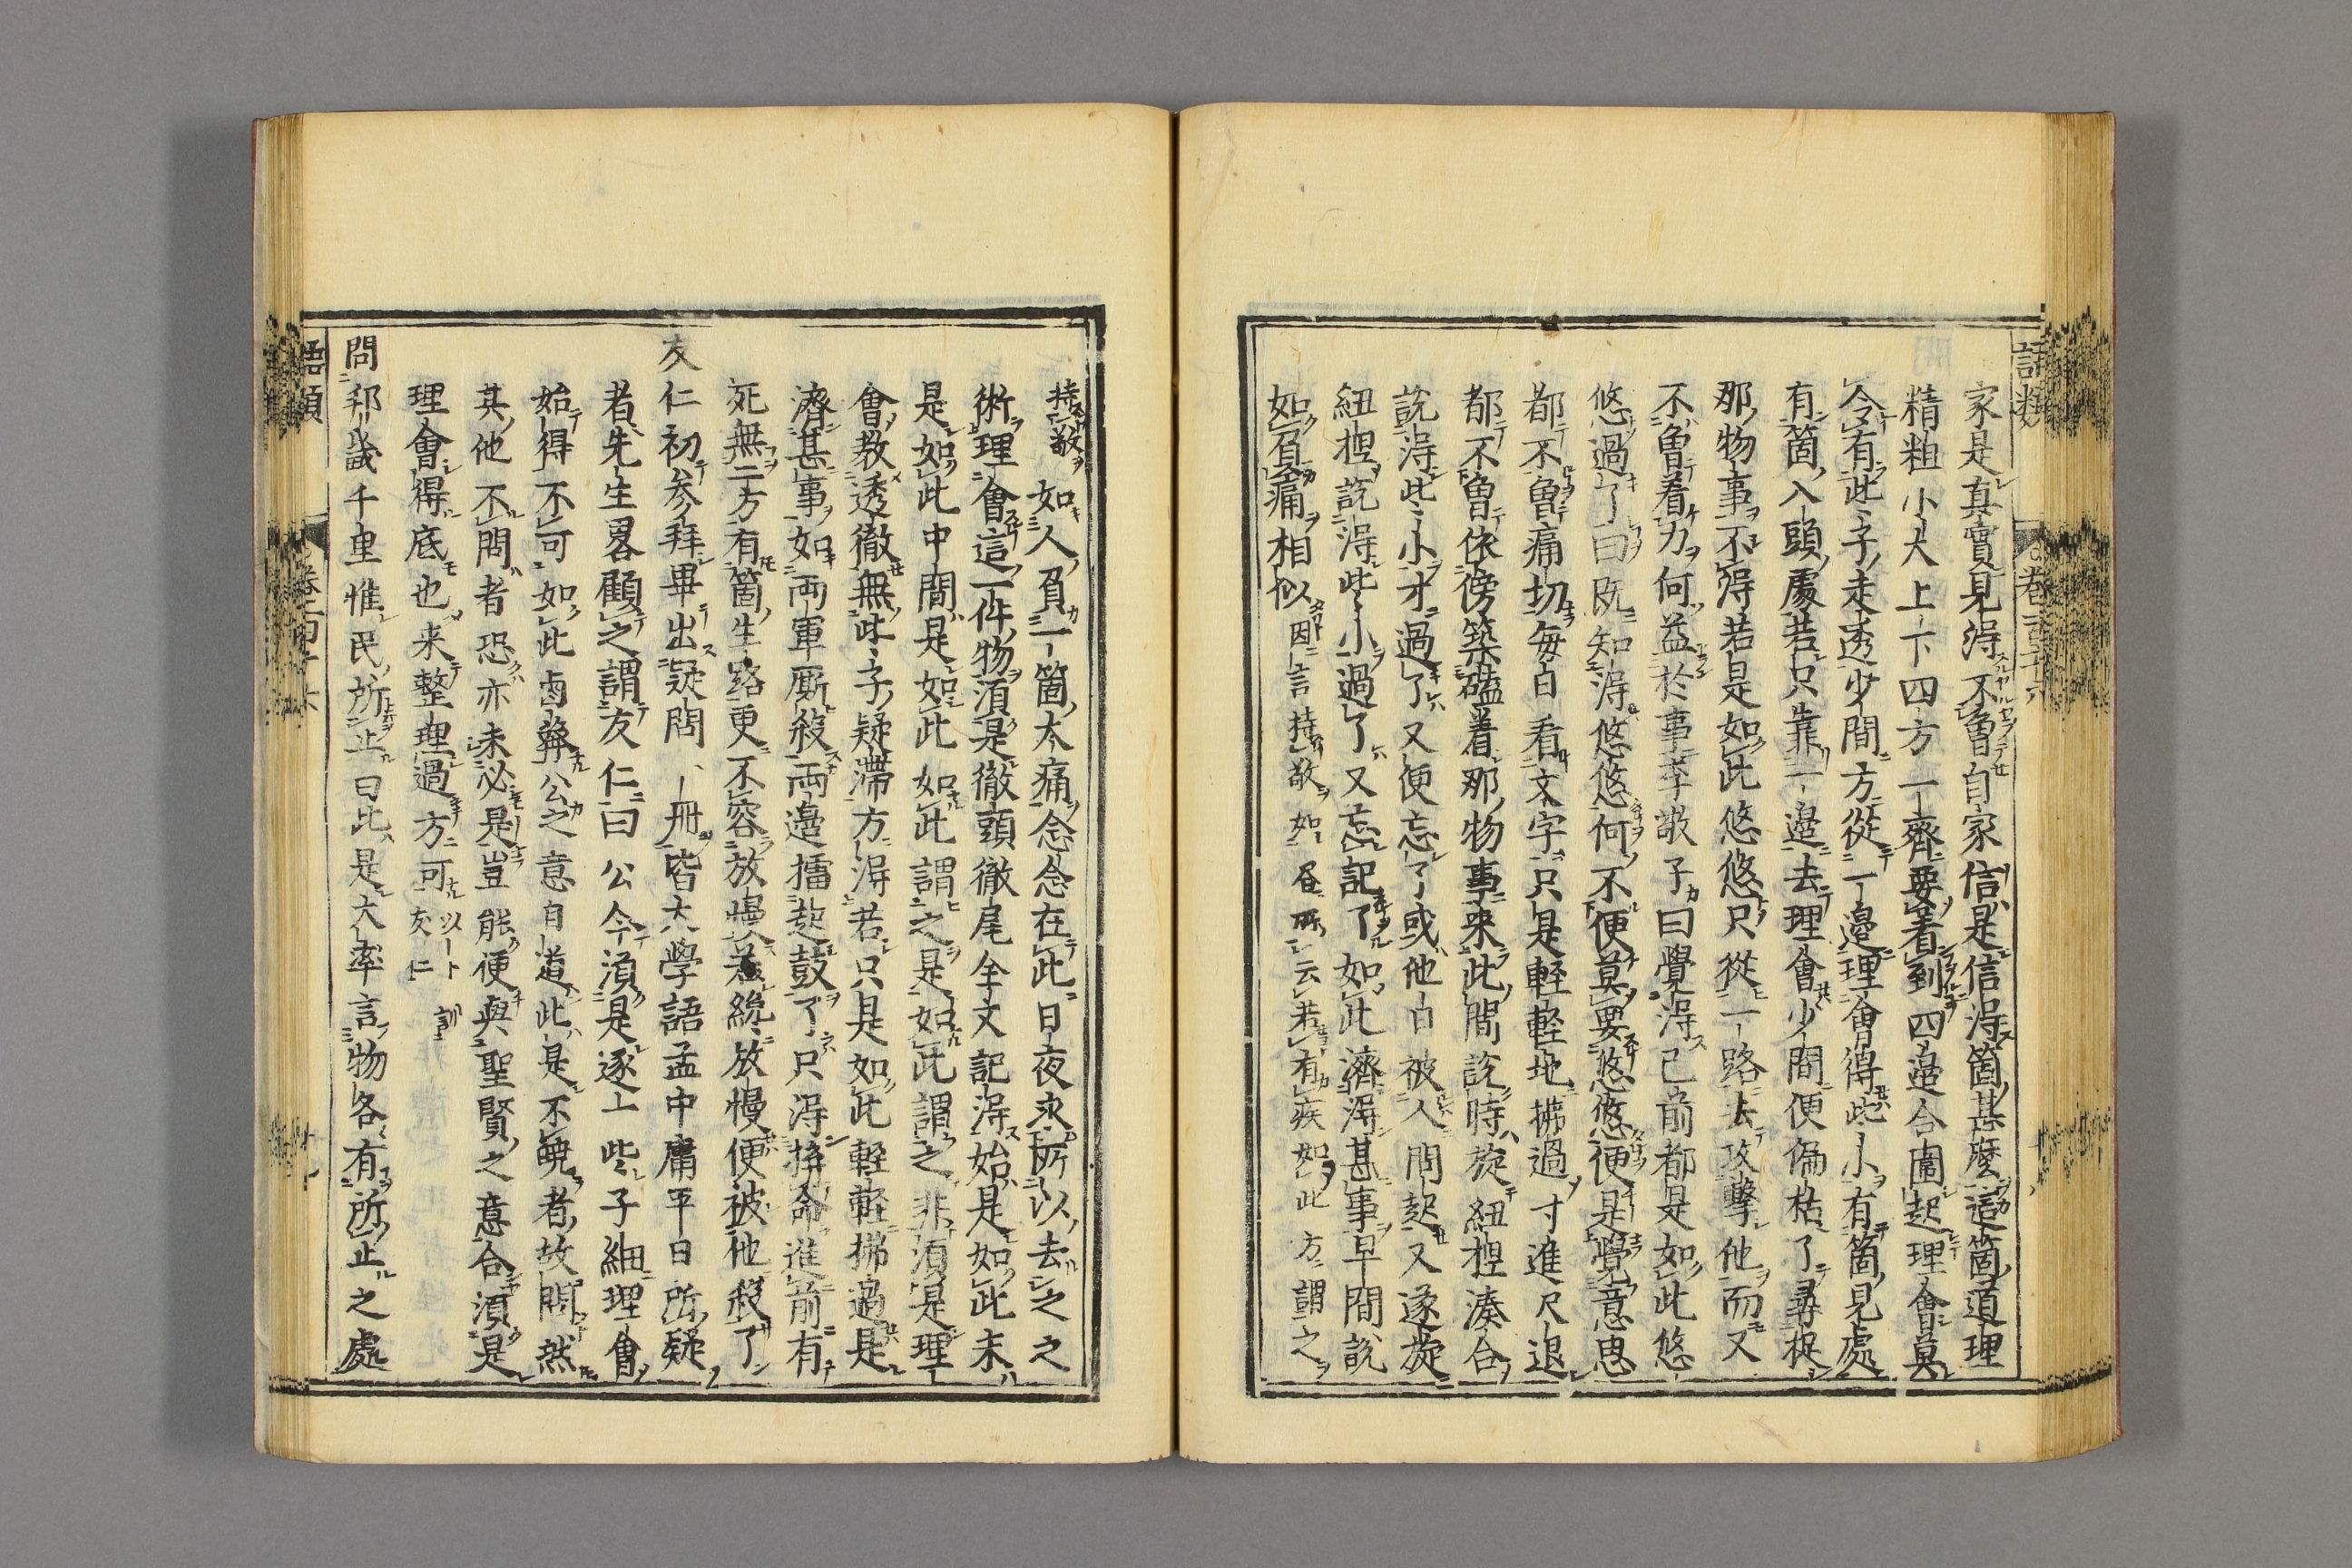 語類
卷一百二十六
家是真實見得不曾自家信是信得箇甚麼這箇道理
精粗小大上下四方一齊要着到四邉合圍起理會莫
令有些子走透少間方從一邉理會得些小有箇見處
有箇入頭處若只靠一邉去理會少間便偏枯了尋捉
那物事不得若是如此悠悠只從一路去攻擊他而又
不曾着力何益於事李敬子曰覺得已前都是如此悠
悠過了曰既知得悠悠何不便莫要悠悠便是覺意思
都不曾痛切每日看文字只是輕輕地拂過寸進尺退
都不曾依傍築磕着那物事來此間說時旋紐捏湊合
說得些小才過了又便忘了或他日被人問起又遂旋
紐捏說得些小過了又忘記了如此濟得甚事早間說
如負痛相似因言持敬如昏昧云若有疾如此方謂之
持敬如人負一箇大痛念念在此日夜求所以去之之
術理會這一件物須是徹頭徹尾全文記得始是如此末
是如此中間是如此如此謂之是如此謂之非須是理
會教透徹無些子疑滯方得若只是如此輕輕拂過是
濟甚事如兩軍厮殺兩邉擂起鼓了只得拚命進前有
死無二方有箇生路更不容放慢若纔放慢便被他殺了
友仁初參拜畢出疑問一冊皆大學語孟中庸平日所疑
者先生畧顧之謂友仁曰公今須是逐一些子細理會
始得不可如此鹵莽公之意自道此是不曉者故問然
其他不問者恐亦未必是豈能便與聖賢之意合須是
理會得底也来整理過方可以下訓友仁
問邦畿千里惟民所止曰此是大率言物各有所止之處
語類
卷一百二十六